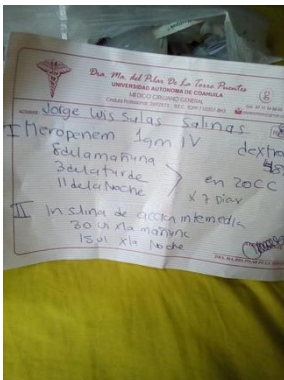 Dra. Ma. del Pilar De La Torre Puentes
UNIVERSIDAD AUTONOMA DE COAHUILA
MEDICO CIRUJANO GENERAL
Jorge Luis Salas Salinas
I Meropenem 1gm IV
dextro
8 de la mañana
3 de la tarde
en 20CC
11 de la Noche
x 7 Dias
II Insulina de accion intermedia
30 UI x la mañana
15 UI x la Noche